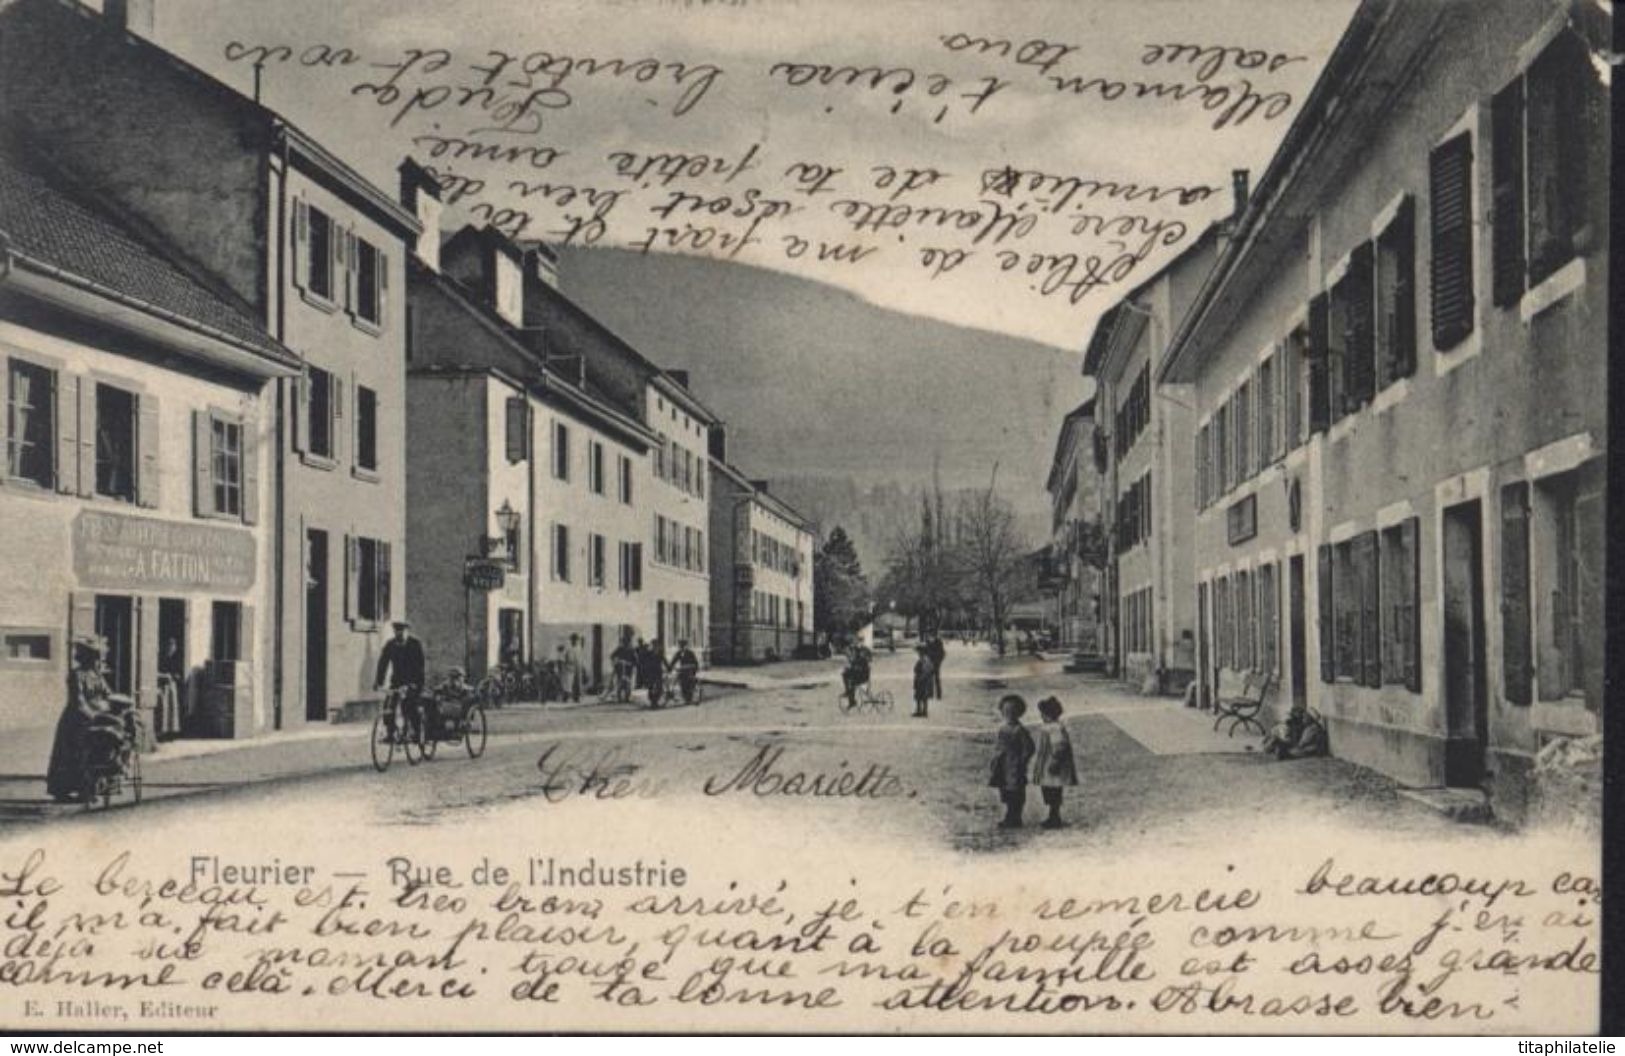 Chère Mariette.
Fleurier — Rue de l'Industrie
Le berceau est très bien arrivé, je t'en remercie beaucoup car
il m'a fait bien plaisir, quant à la poupée comme j'en ai
déjà six maman trouve que ma famille est assez grande
comme celà. Merci de ta bonne attention. Abrasse bien
Alice de ma part et toi
chère Mariette reçoit bien des
amitiés de ta petite amie
Frida
Maman t'écrira bientôt et vous
salue tous.
A. FATTON
E. Haller, Editeur
www.delcampe.net
titaphilatelie